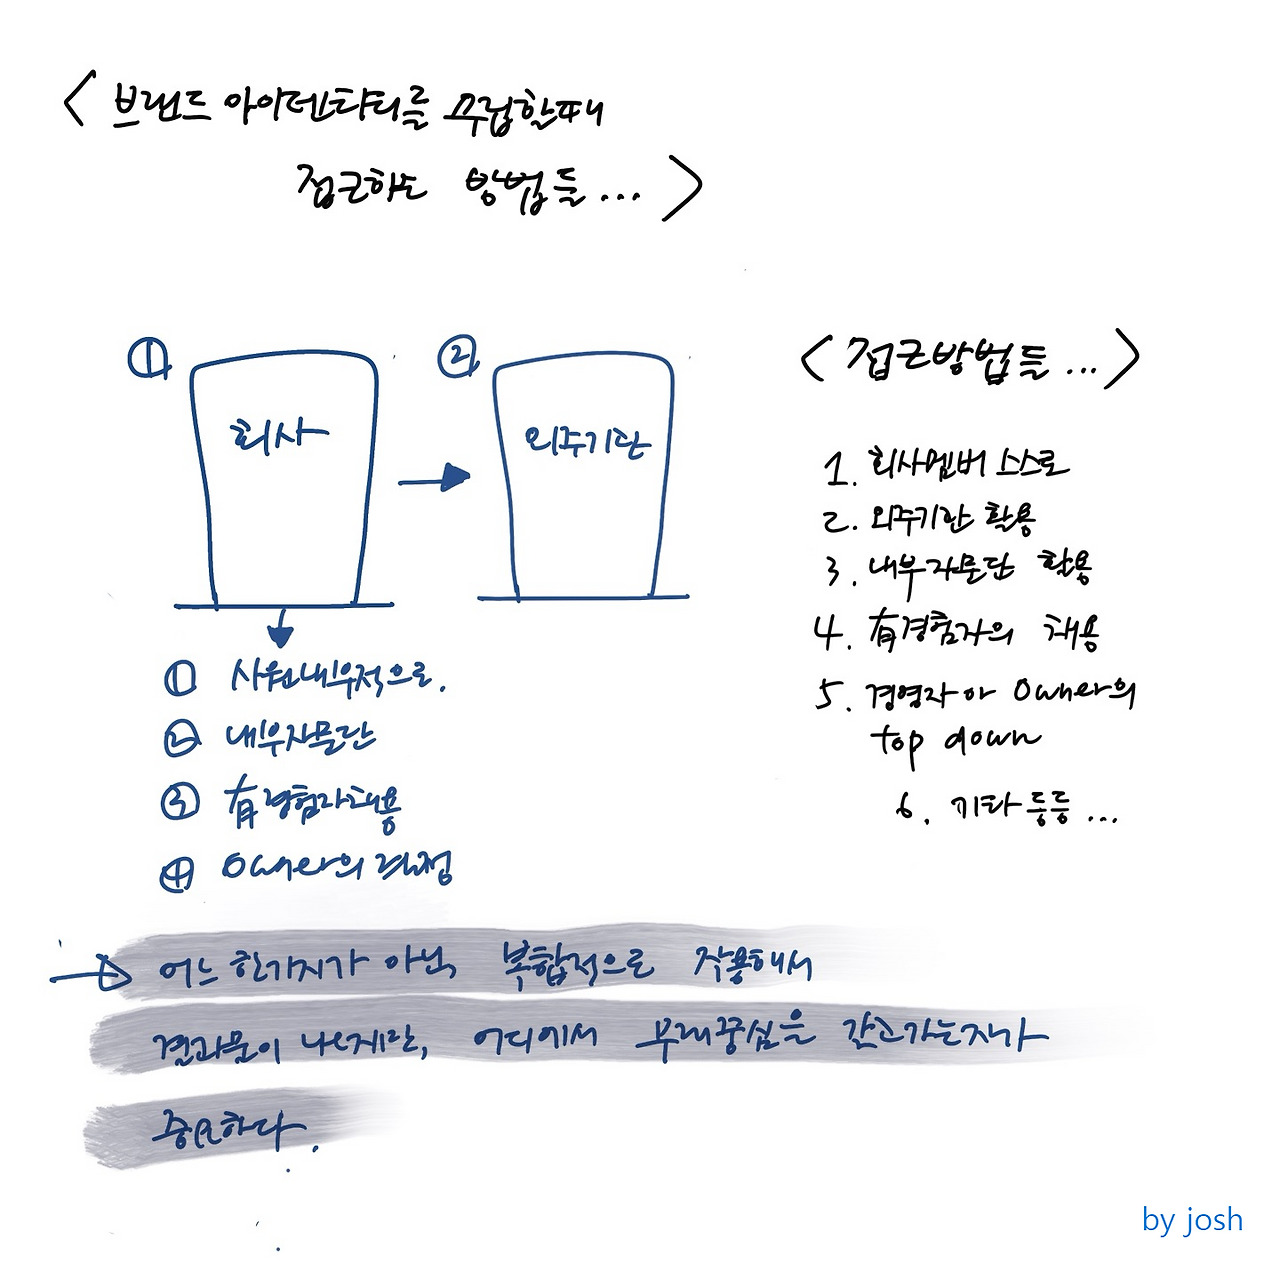 < 브랜드 아이덴티티를 수립할때
접근하는 방법들... >
① 회사
→
② 외주기관
① 사원내부적으로.
② 내부자문단
③ 有경험자채용
④ Owner의 결정
< 접근방법들... >
1. 회사멤버 스스로
2. 외주기관 활용
3. 내부자문단 활용
4. 有경험자의 채용
5. 경영자 아 Owner의
top down
6. 기타등등...
→ 어느 한가지가 아닌, 복합적으로 작용해서
결과물이 나오지만, 어디에서 무게중심을 갖고가는지가
중요하다.
by josh